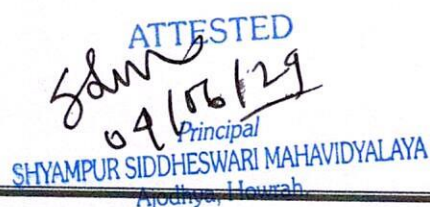 ATTESTED
04/06/29
Principal
SHYAMPUR SIDDHESWARI MAHAVIDYALAYA
Ajodhya, Howrah